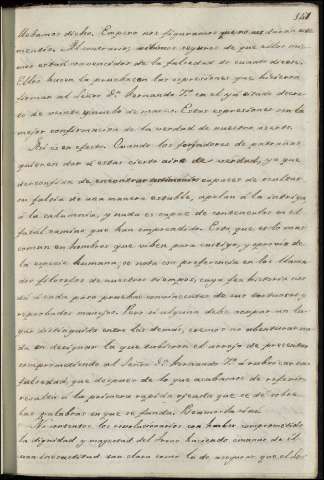 151
Hubamos dicho. Empero nos figuramos que no nos darán un
mentís. Al contrario, estamos seguros de que ellos mis-
mos están convencidos de la falsedad de cuanto dicen.
Ellos hacen la prueba con las expresiones que hicieron
firmar al Señor Dn. Fernando 7º en el ya citado decre-
to de veinte y cuatro de marzo. Estas expresiones son la
mejor confirmacion de la verdad de nuestro aserto.
Así es en efecto. Cuando los forjadores de patrañas
quieren dar á estas cierto aire de verdad, ya que
desconfian de encontrar testimonios capaces de ocultar
su falsia de una manera estable, apelan á la intriga
á la calumnia, y nada es capaz de contenerlos en el
fatal camino que han emprendido. Esto que es lo mas
comun en hombres que viben para castigo, y oprovio de
la especie humana; se nota con preferencia en los llama-
dos filosofos de nuestros tiempos, cuya fea historia nos
dá á cada paso pruebas convincentes de sus tortuosos y
reprobados manejos. Pero si alguna debe ocupar un lu-
gar distinguido entre las demás, creemos no abenturar na-
da en designar la que tubieron el arrojo de presentar
comprometiendo al Señor Dn. Fernando 7º á rubricar una
falsedad, que despues de lo que acabamos de referir,
resalta á la primera rapida ojeada que se dé sobre
las palabras en que se funda. Demos la aqui.
No contentos los revolucionarios con haber comprometido
la dignidad y magestad del trono haciendo emanar de él
una inexactitud tan clara como la de asegurar que el Se-